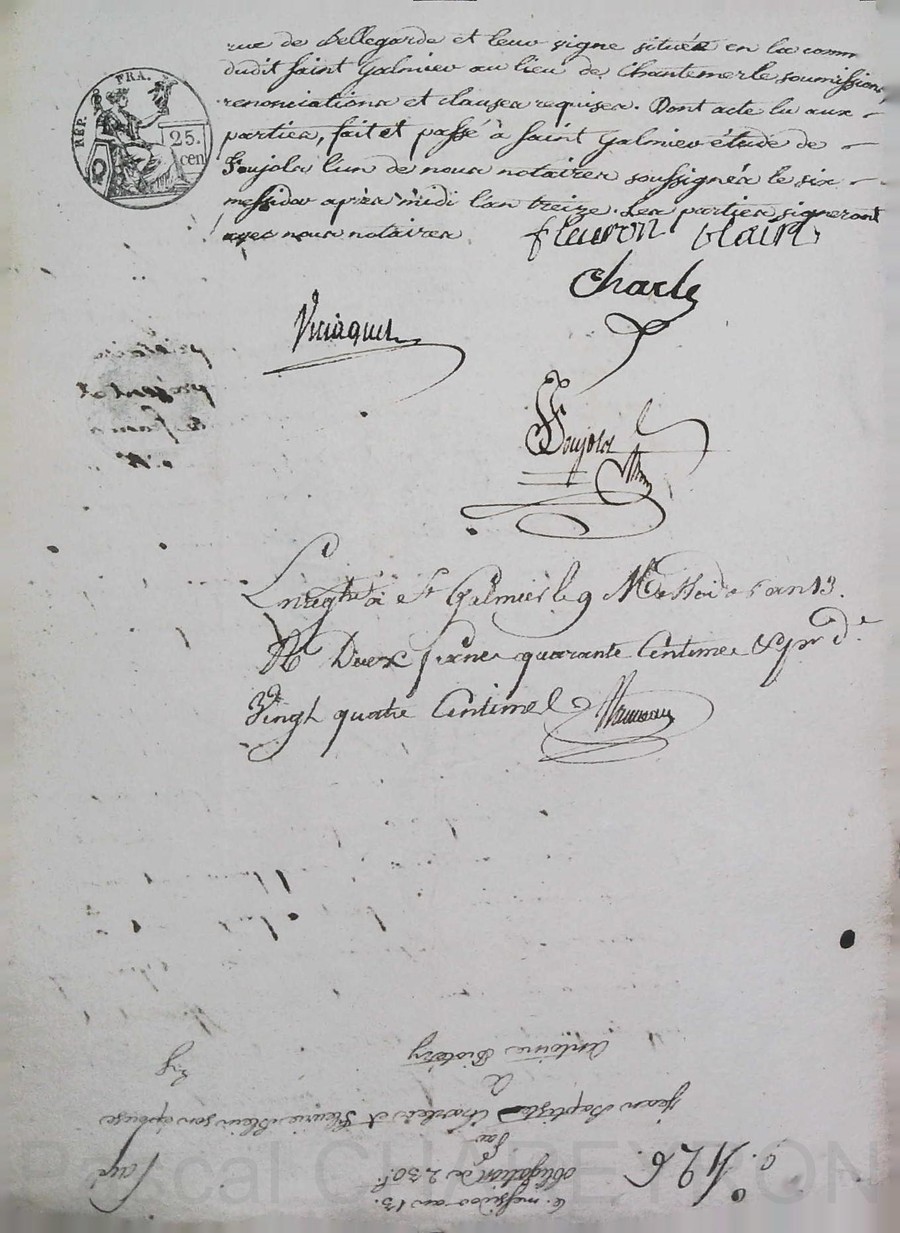 rue de Bellegarde et leur vigne située en la comm
dudit Saint Galmier au lieu de Chantemerle, soumissions,
renonciations et clauses requises. Dont acte lu aux
parties, fait et passé à Saint Galmier étude de
Soujols l'un de nous notaires soussignés le six
messidor après midi l'an treize. Les parties signeront
avec nous notaires
fleuron blain
Charle
Soujols
REP. FRA.
25.
cen
Enregtré à St Galmier le 9 Messidor an 13.
Rç Deux francs quarante Centimes & pr de
Vingt quatre Centimes
6. messidor an 13.
obligation de 230f.
par
Jean Baptiste Charles et fleurie Blein son épouse
à
antoine
126.
Pascal CHAREYRON